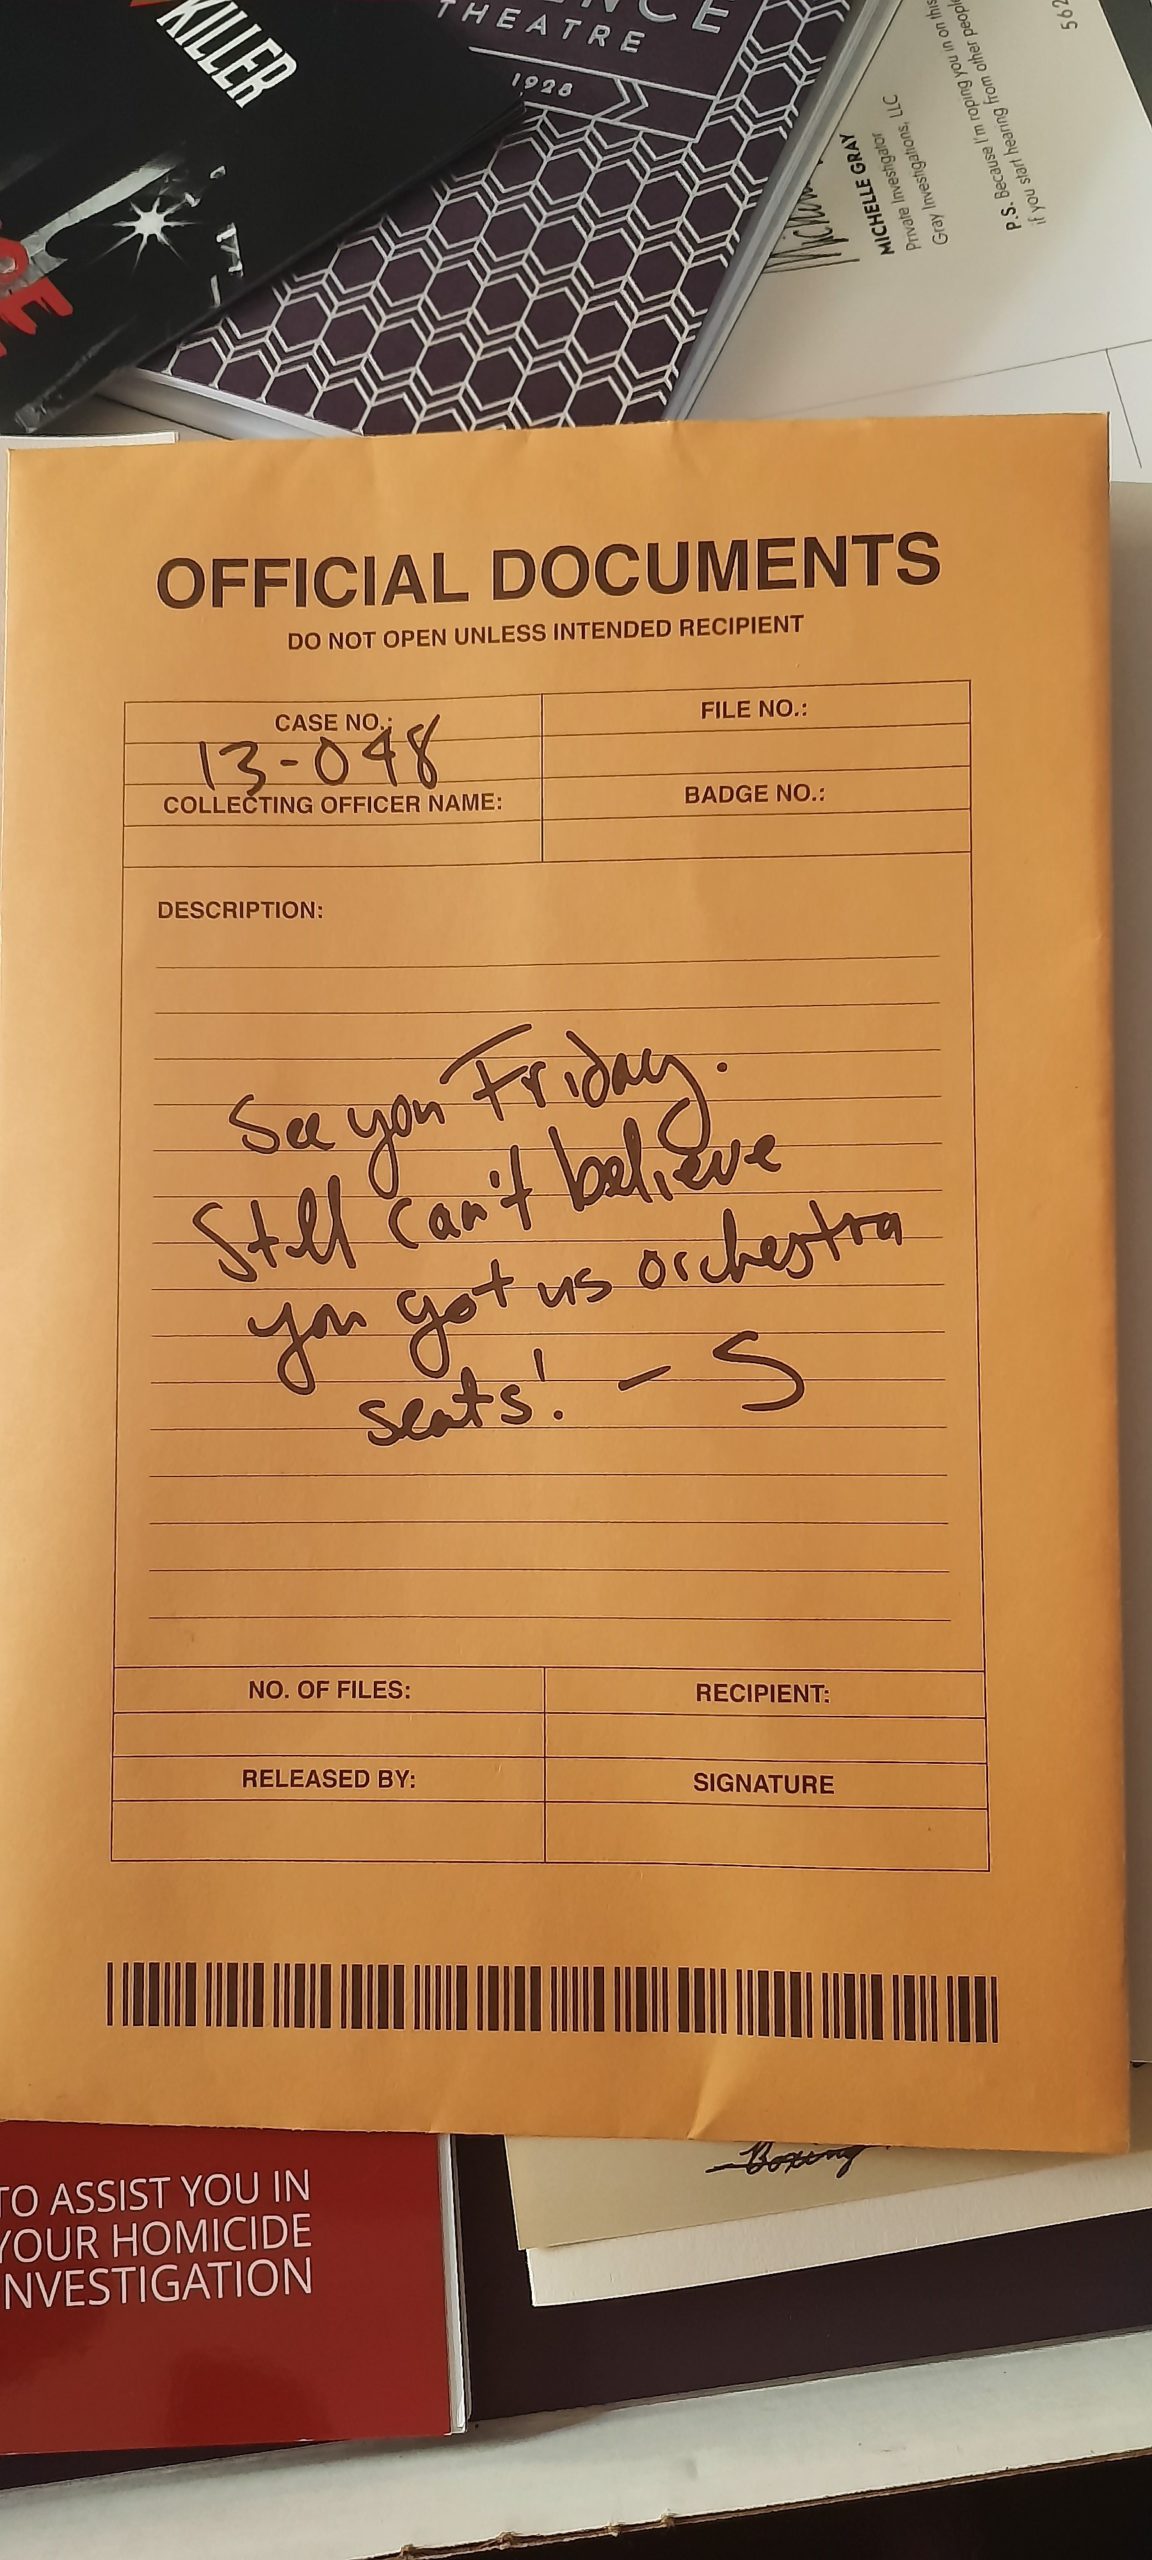 KILLER
THEATRE
1928
MICHELLE GRAY
Private Investigator
Gray Investigations, LLC
P.S. Because I'm roping you in on this
if you start hearing from other people
562
OFFICIAL DOCUMENTS
DO NOT OPEN UNLESS INTENDED RECIPIENT
CASE NO.:
FILE NO.:
13-048
COLLECTING OFFICER NAME:
BADGE NO.:
DESCRIPTION:
See you Friday.
Still can't believe
you got us orchestra
seats! - S
NO. OF FILES:
RECIPIENT:
RELEASED BY:
SIGNATURE
Boxing
TO ASSIST YOU IN
YOUR HOMICIDE
INVESTIGATION